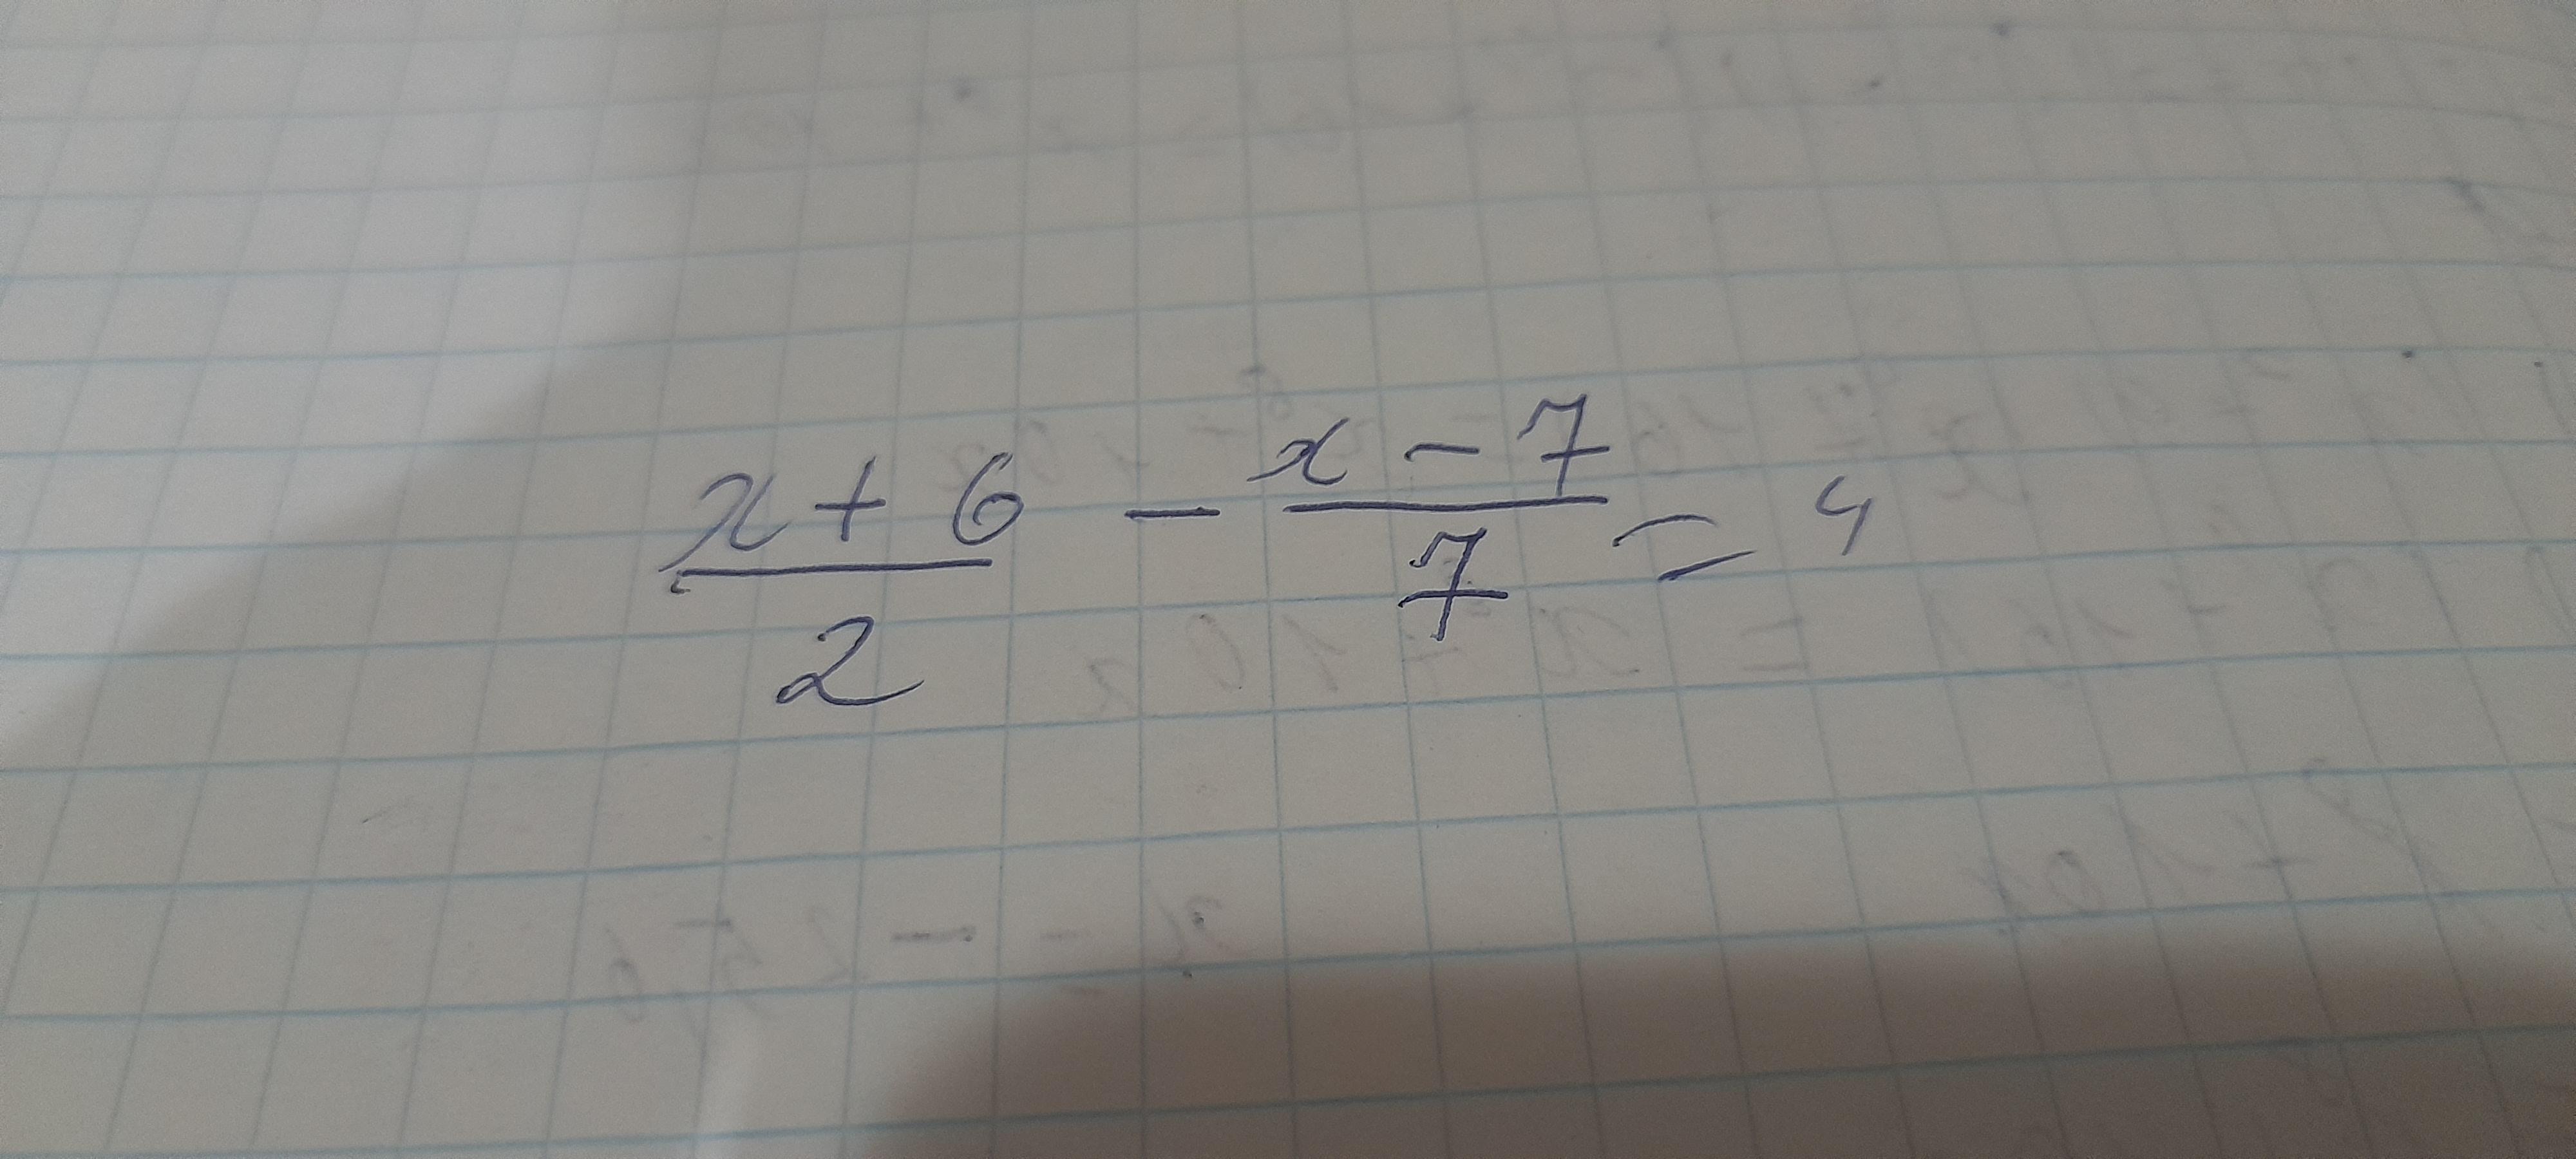 \frac{x+6}{2} - \frac{x-7}{7} = 4